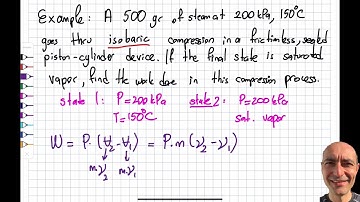 Example: A 500 gr of steam at 200 kPa, 150°C
goes thru isobaric compression in a frictionless, sealed
piston-cylinder device. If the final state is saturated
vapor, find the work due in this compression process.
state 1: P=200kPa state 2: P=200kPa
T=150°C sat. vapor
W = P.(V₂-V₁) = P.m(ν₂-ν₁)
m.ν₂ m.ν₁